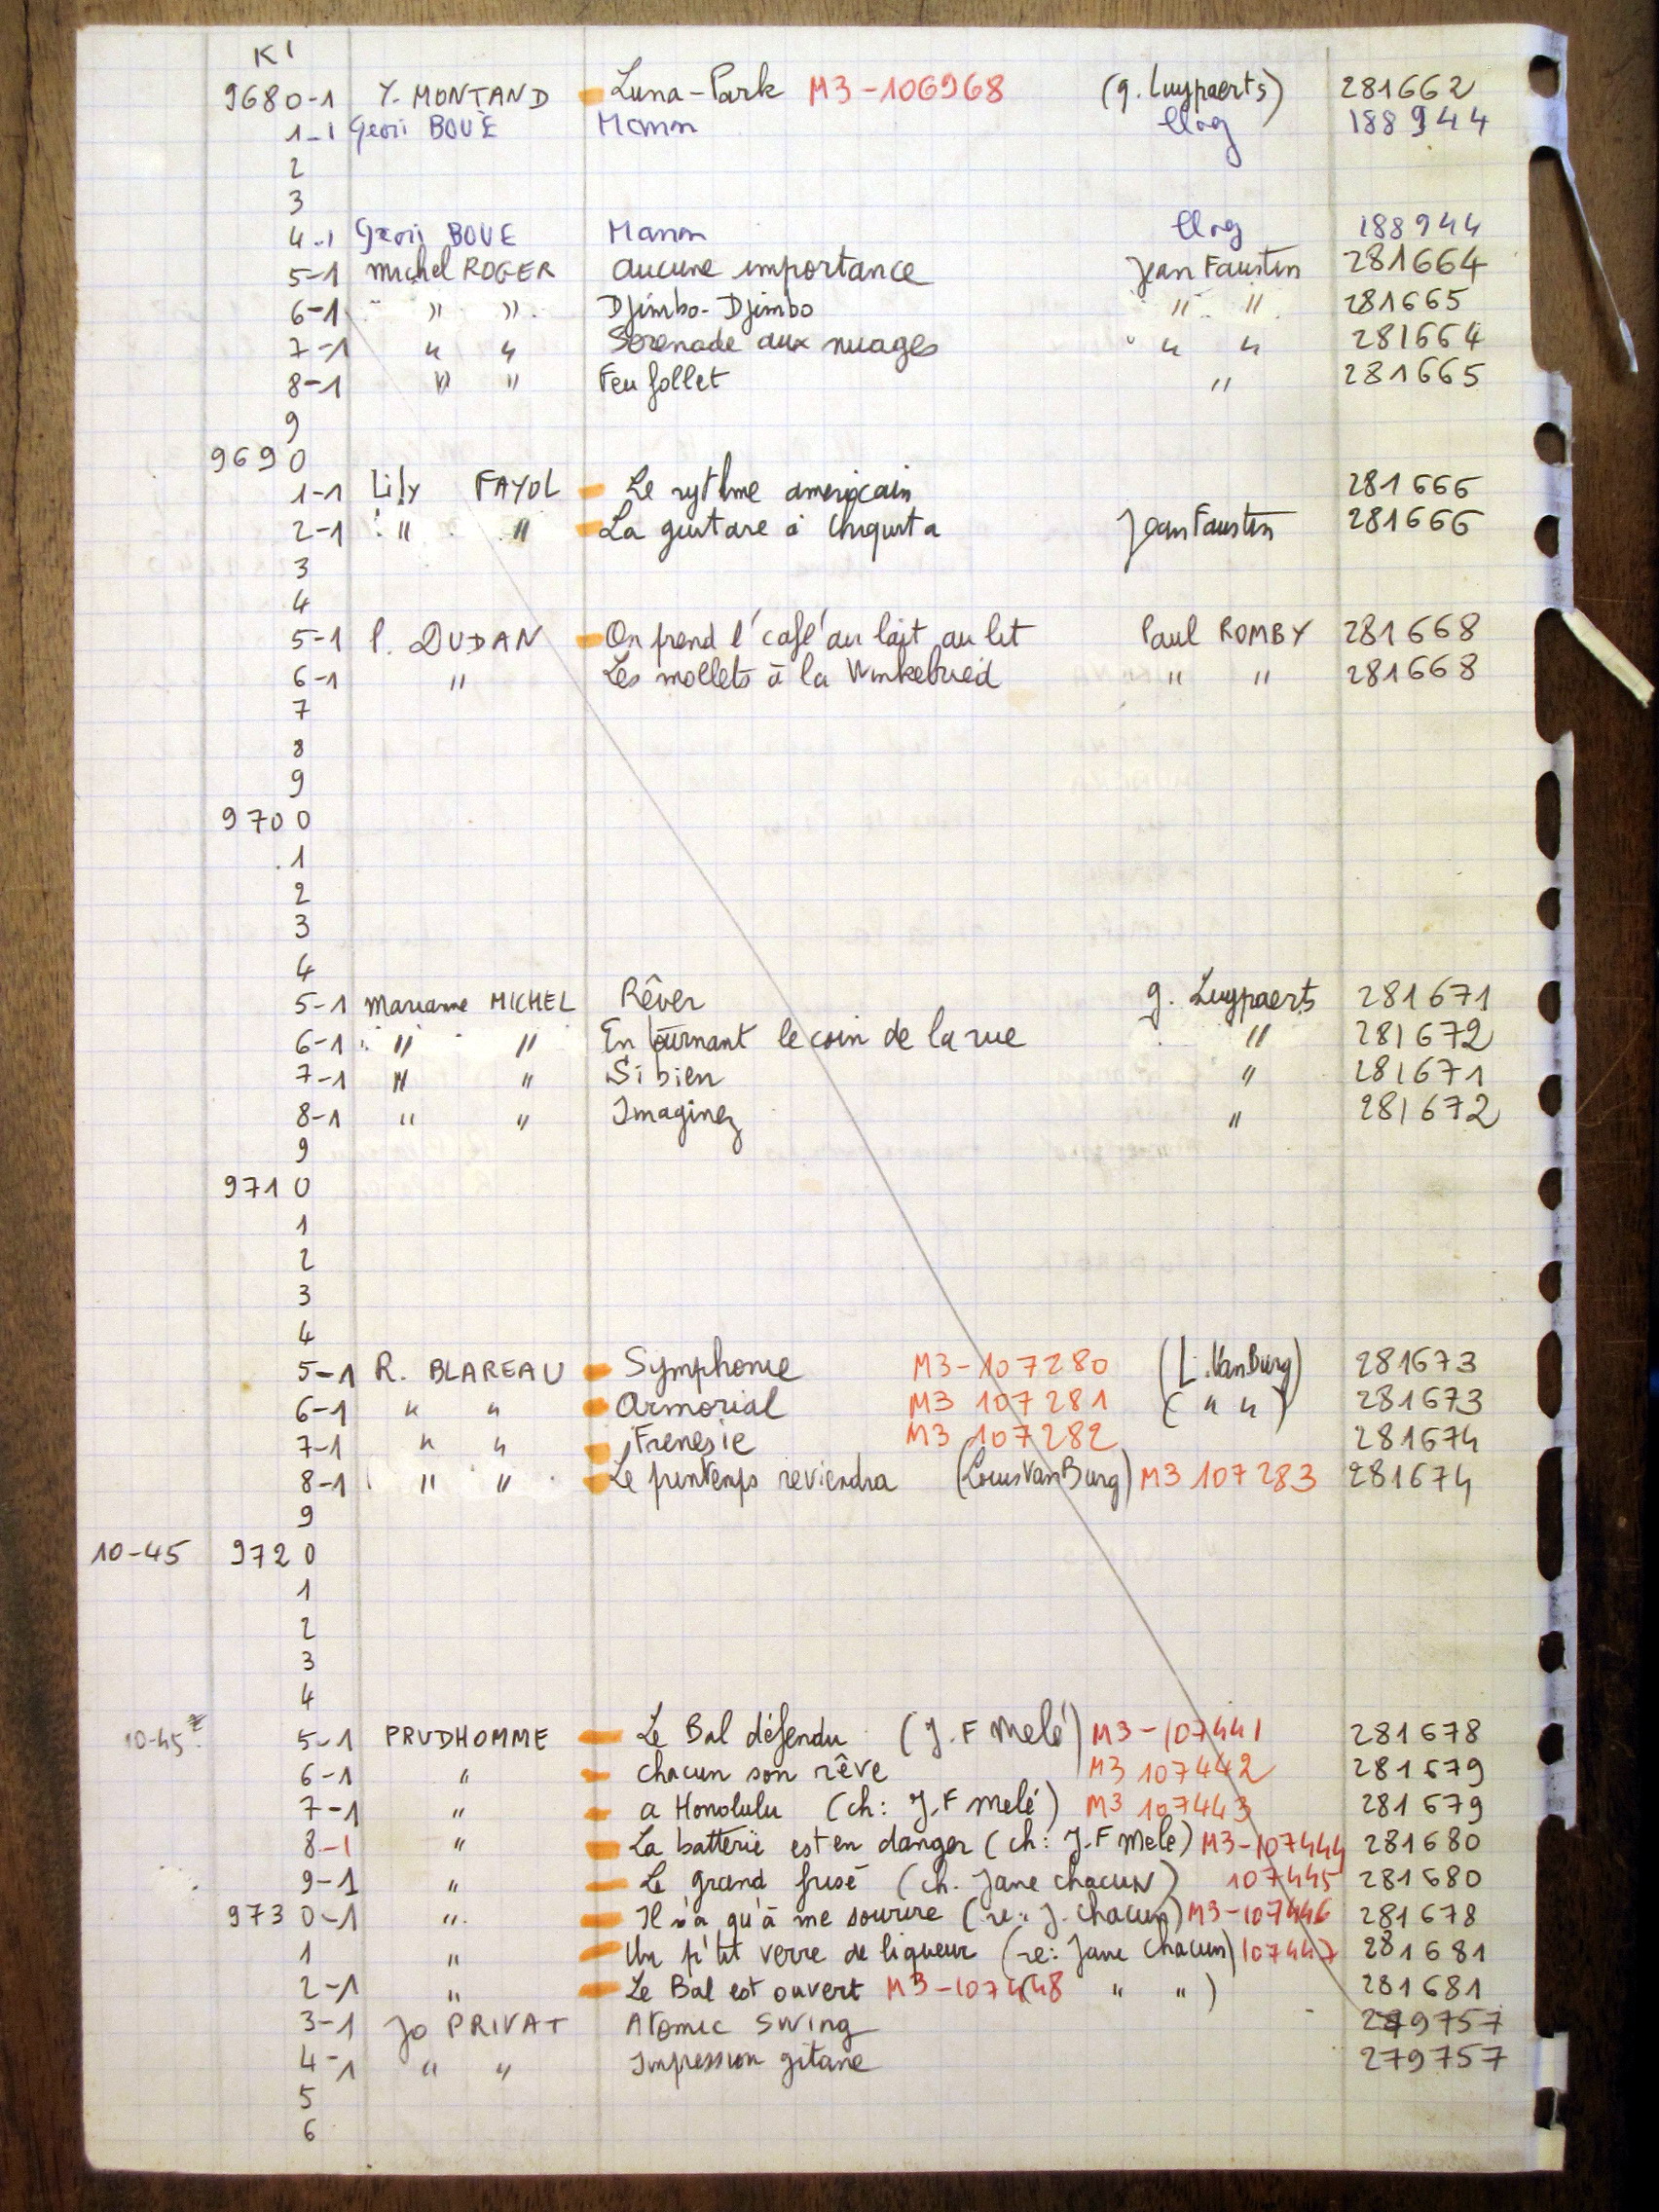 KI
9680-1 Y. MONTAND Luna-Park M3-106968 (g. Luypaerts) 281662
1-1 Geori BOUÉ Manon Cloëz 188944
2
3
4-1 Geori BOUE Manon Cloëz 188944
5-1 Michel ROGER aucune importance Jean Faustin 281664
6-1 " " Djimbo-Djimbo " " 281665
7-1 " " Serenade aux nuages " " 281664
8-1 " " Feu follet " 281665
9
9690
1-1 Lily FAYOL Le rythme americain 281666
2-1 " " La guitare à Chiquita Jean Faustin 281666
3
4
5-1 P. DUDAN On prend l'café au lait au lit Paul ROMBY 281668
6-1 " Les mollets à la Winkelried " " 281668
7
8
9
9700
1
2
3
4
5-1 Marianne MICHEL Rêver g. Luypaerts 281671
6-1 " " En tournant le coin de la rue " 281672
7-1 " " Si bien " 281671
8-1 " " Imaginez " 281672
9
9710
1
2
3
4
5-1 R. BLAREAU Symphonie M3-107280 (L. Van Burg) 281673
6-1 " " Armorial M3 107281 ( " " ) 281673
7-1 " " Frenesie M3 107282 281674
8-1 " " Le printemps reviendra (Louis Van Burg) M3 107283 281674
9
10-45 9720
1
2
3
4
10-45? 5-1 PRUDHOMME Le Bal défendu (J.F Melé) M3-107441 281678
6-1 " chacun son rêve M3 107442 281679
7-1 " a Honolulu (ch: J.F melé) M3 107443 281679
8-1 " La batterie est en danger (ch: J.F Mele) M3-107444 281680
9-1 " Le grand frisé (ch. Jane chacun) 107445 281680
9730-1 " Il n'a qu'à me sourire (re: J. Chacun) M3-107446 281678
1 " Un p'tit verre de liqueur (re: Jane Chacun) 107447 281681
2-1 " Le Bal est ouvert M3-107448 ( " " ) 281681
3-1 Jo PRIVAT Atomic swing 279757
4-1 " " Impression gitane 279757
5
6